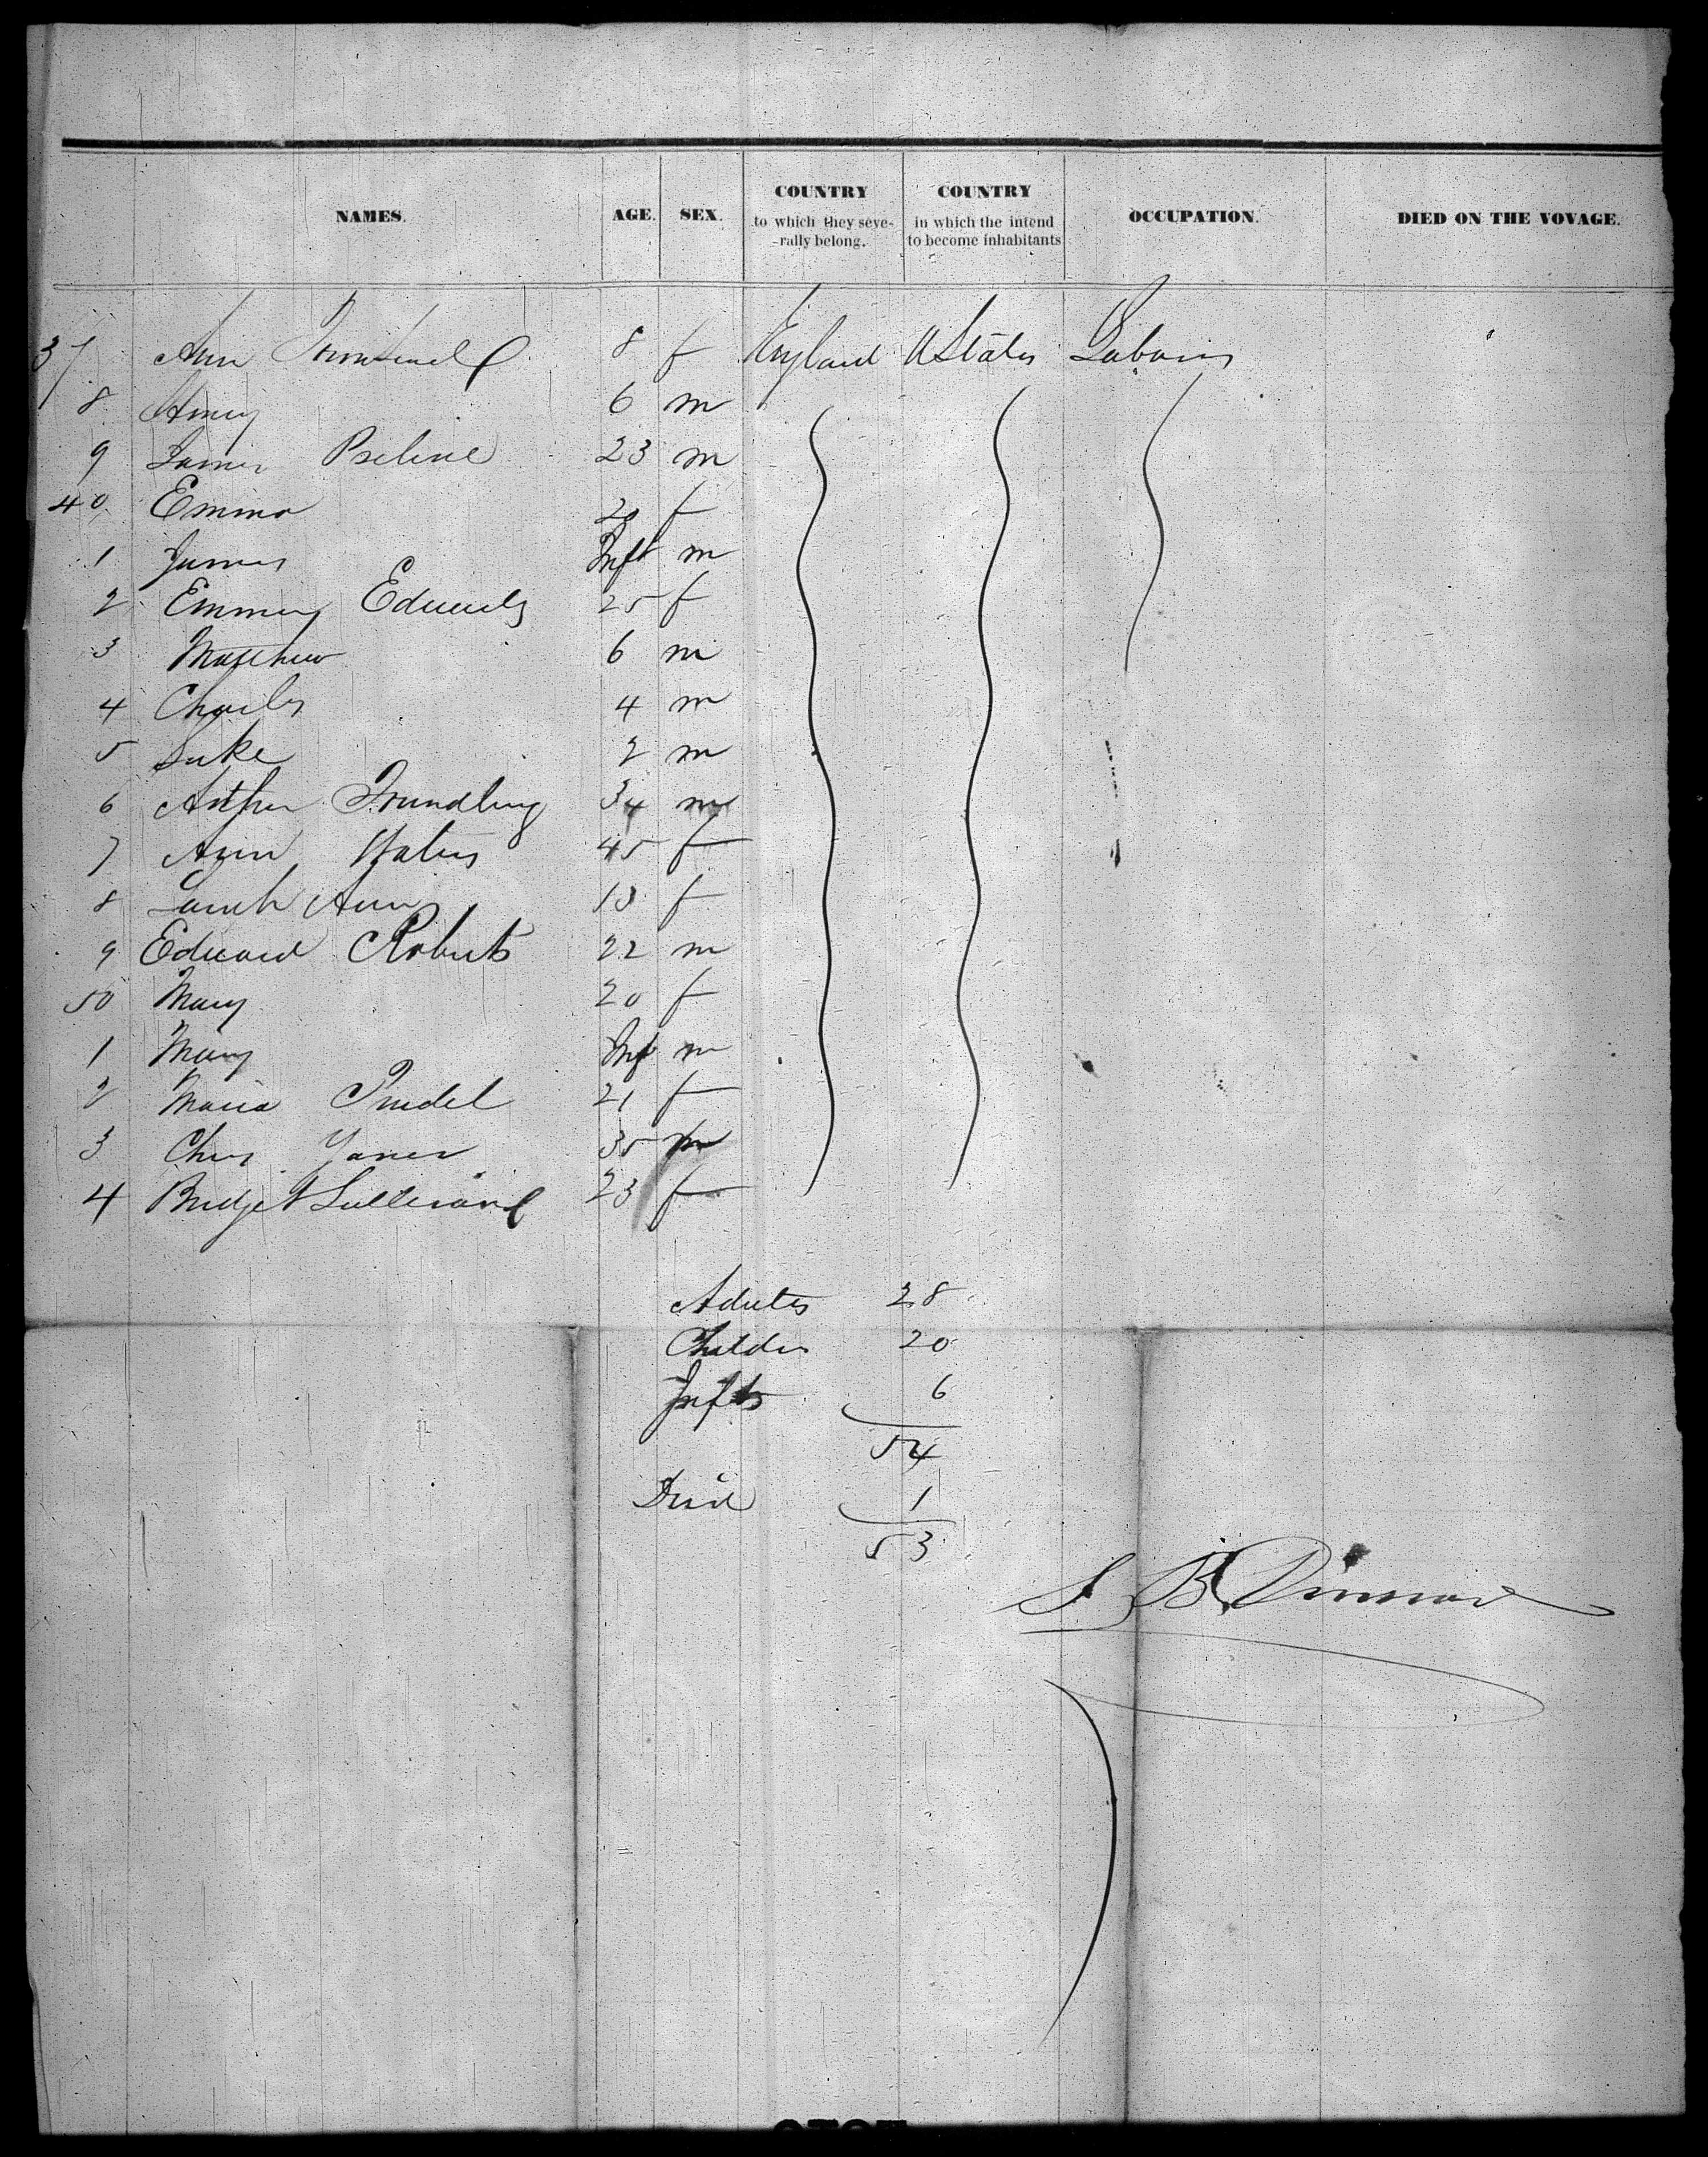 NAMES. AGE. SEX. COUNTRY to which they seve--rally belong. COUNTRY in which the intend to become inhabitants OCCUPATION. DIED ON THE VOYAGE.
37 Ann 8 f England UStates
8 Henry 6 m
9 James 23 m
40 Emma 20 f
1 James Inft m
2 Edwards 25 f
3 Matthew 6 m
4 Charles 4 m
5 Luke 2 m
6 Arthur 34 m
7 Ann 45 f
8 Sarah Ann f
9 Edward Roberts 22 m
50 Mary 20 f
1 Mary Inf m
2 Maria 21 f
3 Chas 35 m
4 Bridget Sullivan 23 f
Adults 28
Childn 20
Infts 6
54
Died 1
53
S B